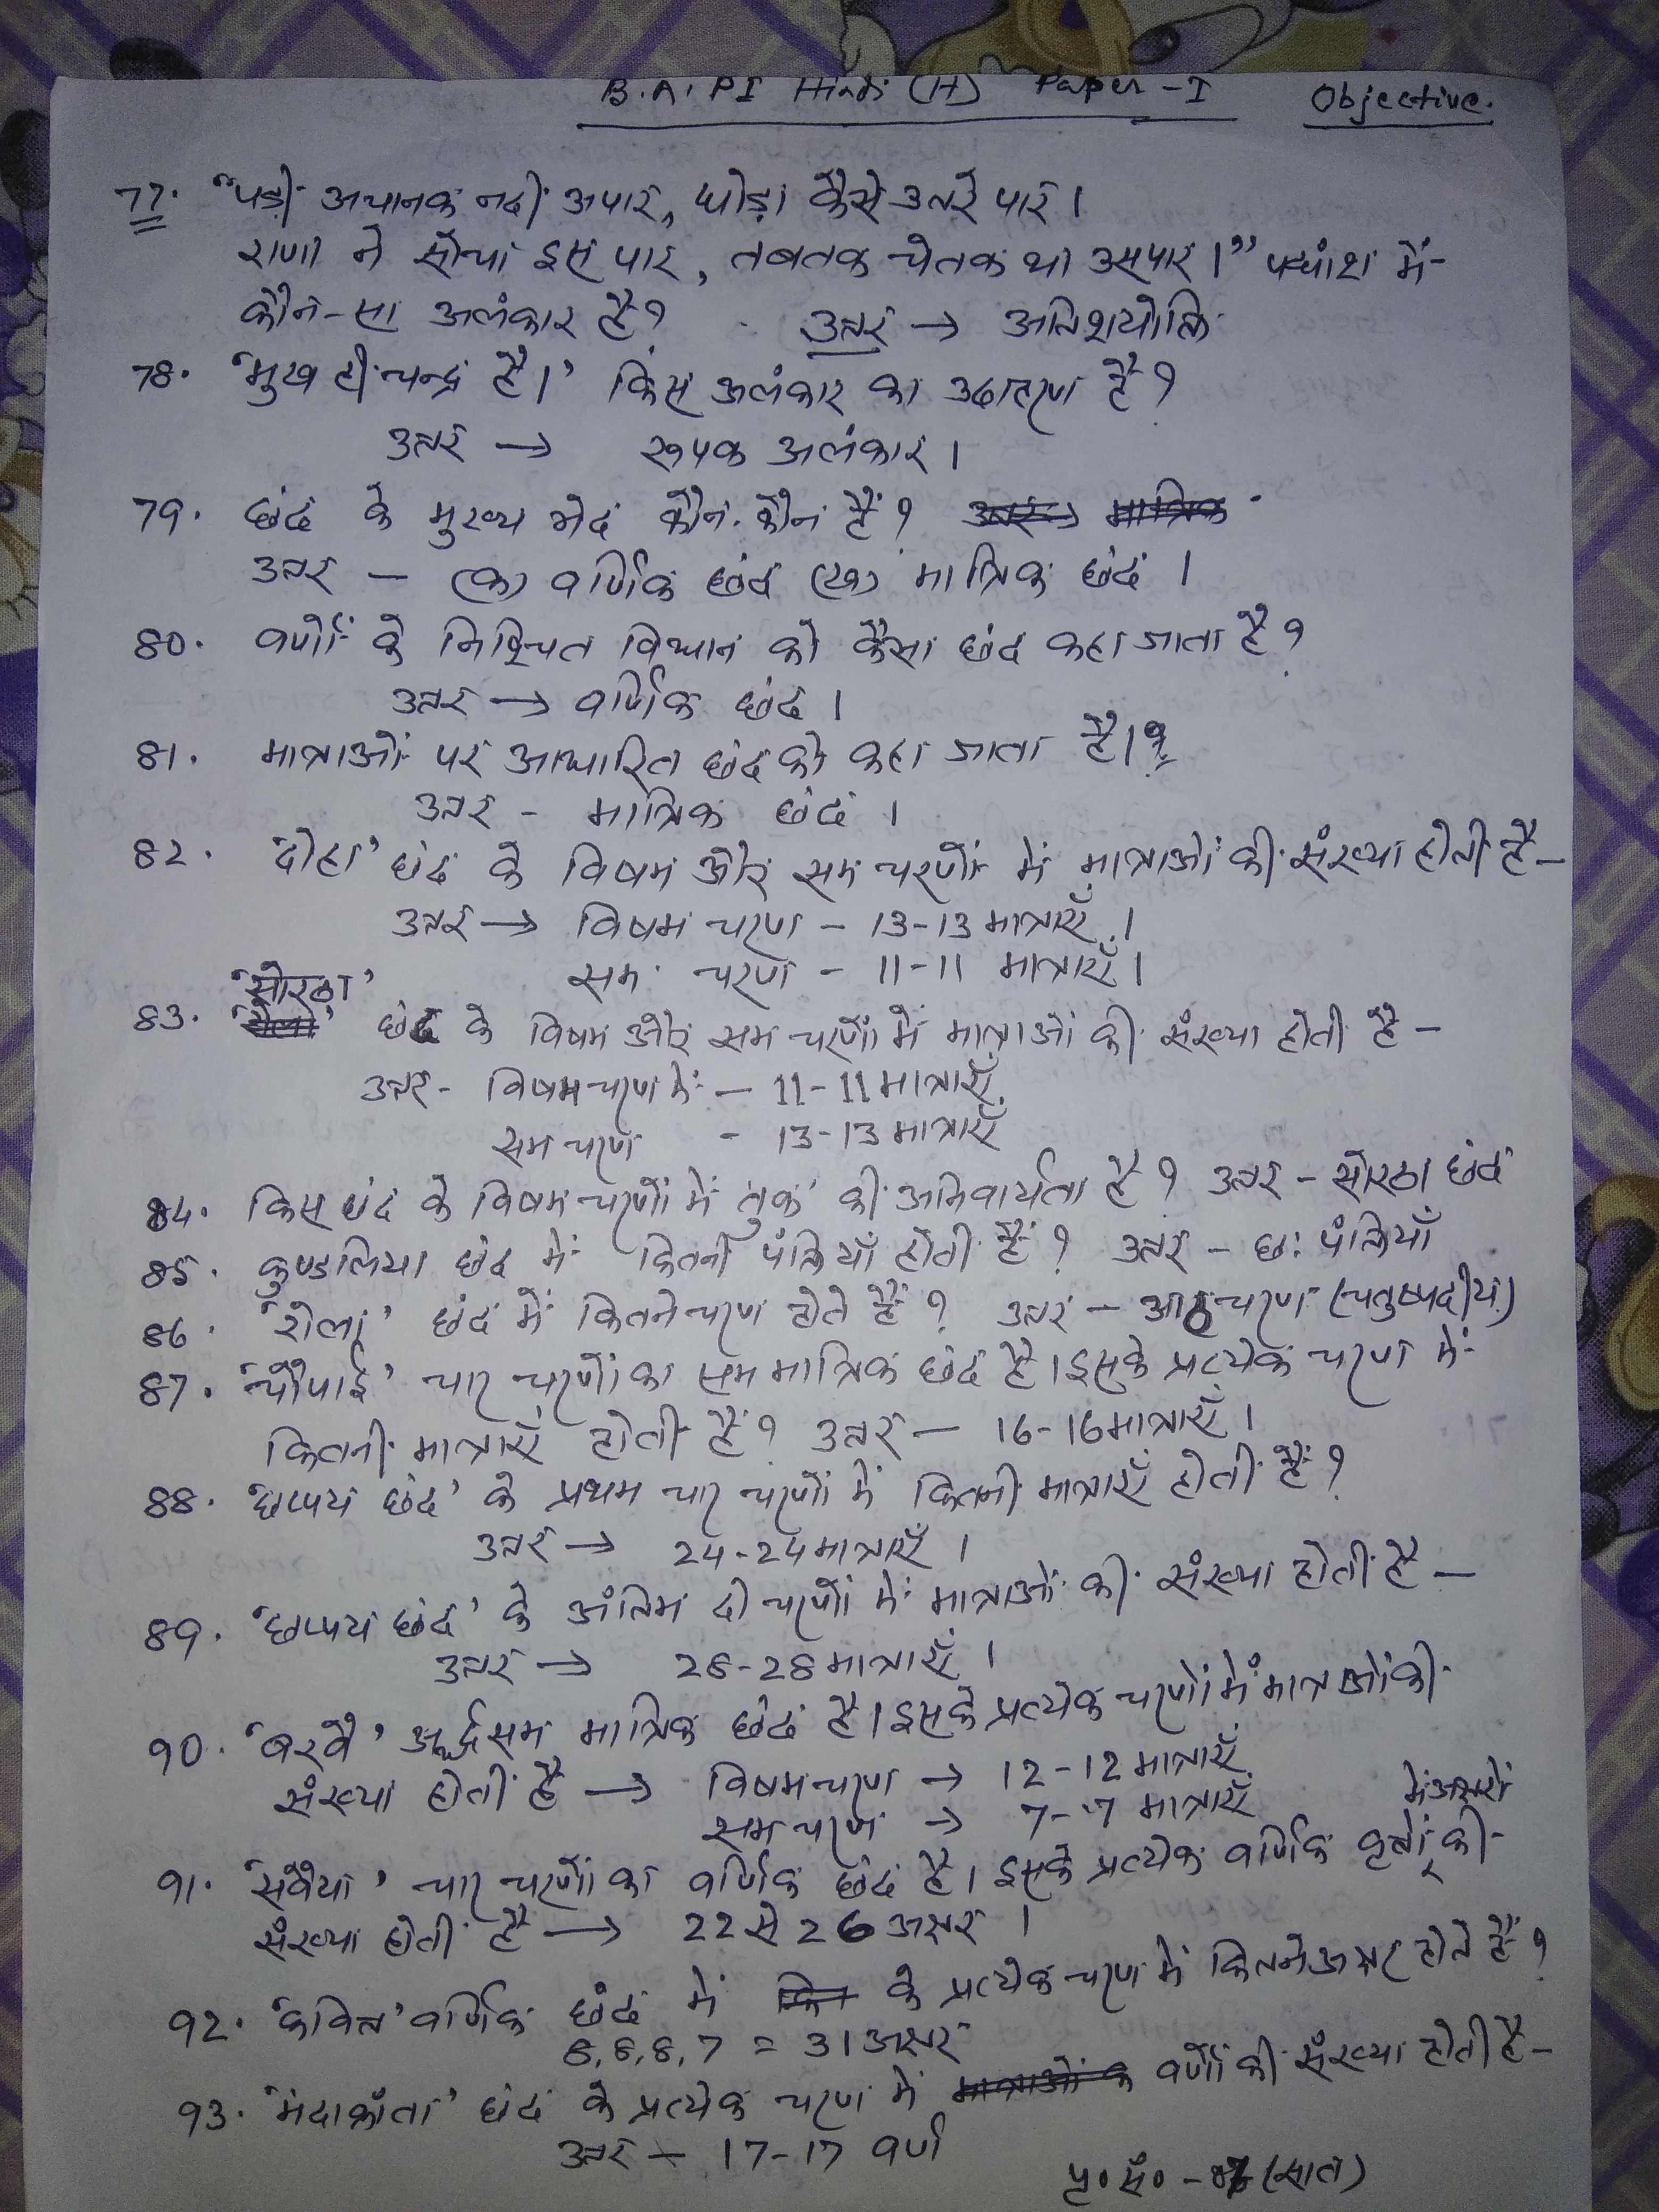 B.A. PI Hindi (H) Paper - I Objective.
77. "पड़ी अचानक नदी अपार, घोड़ा कैसे उतरे पार।
राणा ने सोचा इस पार, तबतक चेतक था उसपार।" पद्यांश में
कौन-सा अलंकार है? उत्तर → अतिशयोक्ति
78. 'मुख ही चन्द्र है।' किस अलंकार का उदाहरण है?
उत्तर → रूपक अलंकार।
79. छंद के मुख्य भेद कौन-कौन हैं? उत्तर → मात्रिक
उत्तर - (क) वर्णिक छंद (ख) मात्रिक छंद।
80. वर्णों के निश्चित विधान को कैसा छंद कहा जाता है?
उत्तर → वर्णिक छंद।
81. मात्राओं पर आधारित छंद को कहा जाता है।?
उत्तर - मात्रिक छंद।
82. 'दोहा' छंद के विषम और सम चरणों में मात्राओं की संख्या होती है-
उत्तर → विषम चरण - 13-13 मात्राएँ।
सम चरण - 11-11 मात्राएँ।
'सोरठा'
83. छंद के विषम और सम चरणों में मात्राओं की संख्या होती है -
उत्तर - विषम चरण में - 11-11 मात्राएँ
सम चरण - 13-13 मात्राएँ
84. किस छंद के विषम चरणों में 'तुक' की अनिवार्यता है? उत्तर - सोरठा छंद
85. कुण्डलिया छंद में कितनी पंक्तियाँ होती हैं? उत्तर - छः पंक्तियाँ
86. 'रोला' छंद में कितने चरण होते हैं? उत्तर - आठ चरण (चतुष्पदीय)
87. 'चौपाई' चार चरणों का सम मात्रिक छंद है। इसके प्रत्येक चरण में
कितनी मात्राएँ होती हैं? उत्तर - 16-16 मात्राएँ।
88. 'छप्पय छंद' के प्रथम चार चरणों में कितनी मात्राएँ होती हैं?
उत्तर → 24-24 मात्राएँ।
89. 'छप्पय छंद' के अंतिम दो चरणों में मात्राओं की संख्या होती है -
उत्तर → 28-28 मात्राएँ।
90. 'बरवै' अर्द्धसम मात्रिक छंद है। इसके प्रत्येक चरणों में मात्राओं की
संख्या होती है → विषम चरण → 12-12 मात्राएँ
सम चरण → 7-7 मात्राएँ
में अक्षरों
91. 'सवैया' चार चरणों का वर्णिक छंद है। इसके प्रत्येक वर्णिक वृत्तों की
संख्या होती है → 22 से 26 अक्षर।
92. 'कवित्त' वर्णिक छंद में के प्रत्येक चरण में कितने अक्षर होते हैं?
8,8,8,7 = 31 अक्षर
93. 'मंदाक्रांता' छंद के प्रत्येक चरण में मात्राओं क वर्णों की संख्या होती है-
उत्तर - 17-17 वर्ण
पृ० सं० - 7 (सात)